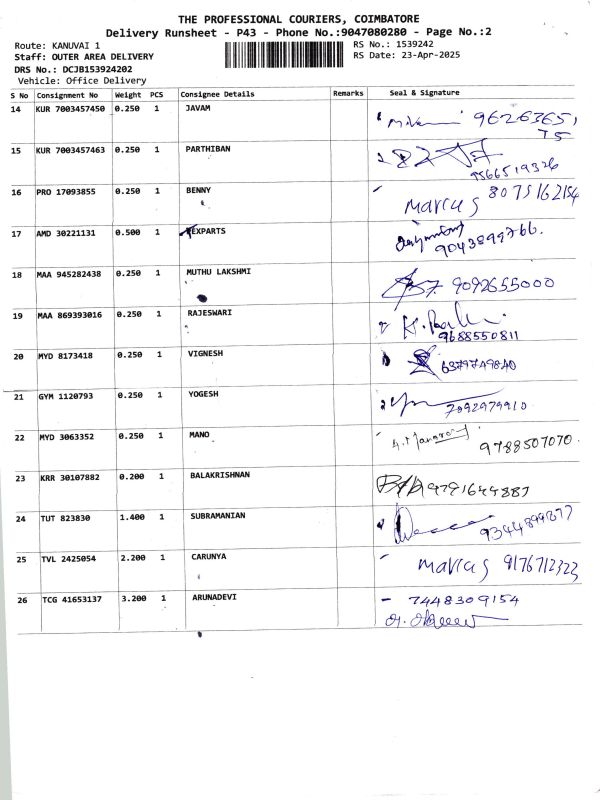 THE PROFESSIONAL COURIERS, COIMBATORE
Delivery Runsheet - P43 - Phone No.:9047080280 - Page No.:2
Route: KANUVAI 1
RS No.: 1539242
Staff: OUTER AREA DELIVERY
RS Date: 23-Apr-2025
DRS No.: DCJB153924202
Vehicle: Office Delivery
S No Consignment No Weight PCS Consignee Details Remarks Seal & Signature
14 KUR 7003457450 0.250 1 JAVAM 96263651
75
15 KUR 7003457463 0.250 1 PARTHIBAN
9566519326
16 PRO 17093855 0.250 1 BENNY Marcus 8075162154
17 AMD 30221131 0.500 1 EXPARTS
9043899766.
18 MAA 945282438 0.250 1 MUTHU LAKSHMI 9092655000
19 MAA 869393016 0.250 1 RAJESWARI
9688550811
20 MYD 8173418 0.250 1 VIGNESH 6379749840
21 GYM 1120793 0.250 1 YOGESH 7092979910.
22 MYD 3063352 0.250 1 MANO 9788507070.
23 KRR 30107882 0.200 1 BALAKRISHNAN 9791644887
24 TUT 823830 1.400 1 SUBRAMANIAN 9344899877
25 TVL 2425054 2.200 1 CARUNYA Marcus 9176712323
26 TCG 41653137 3.200 1 ARUNADEVI - 7448309154